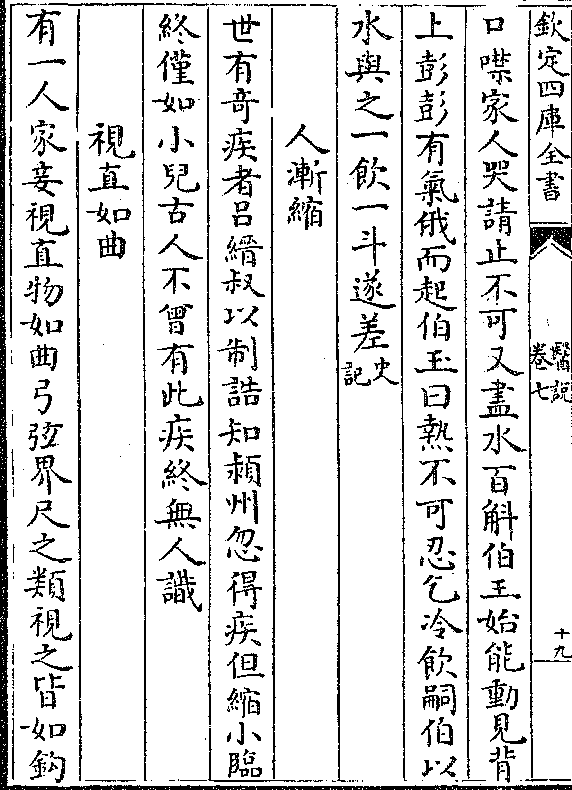 欽定四庫全書
醫說
卷七
十九
口噤家人哭請止不可又盡水百斛伯玉始能動見背
上彭彭有氣俄而起伯玉曰熱不可忍乞冷飲嗣伯以
水與之一飲一斗遂差史記
人漸縮
世有奇疾者呂縉叔以制誥知潁州忽得疾但縮小臨
終僅如小兒古人不曾有此疾終無人識
視直如曲
有一人家妾視直物如曲弓弦界尺之類視之皆如鈎